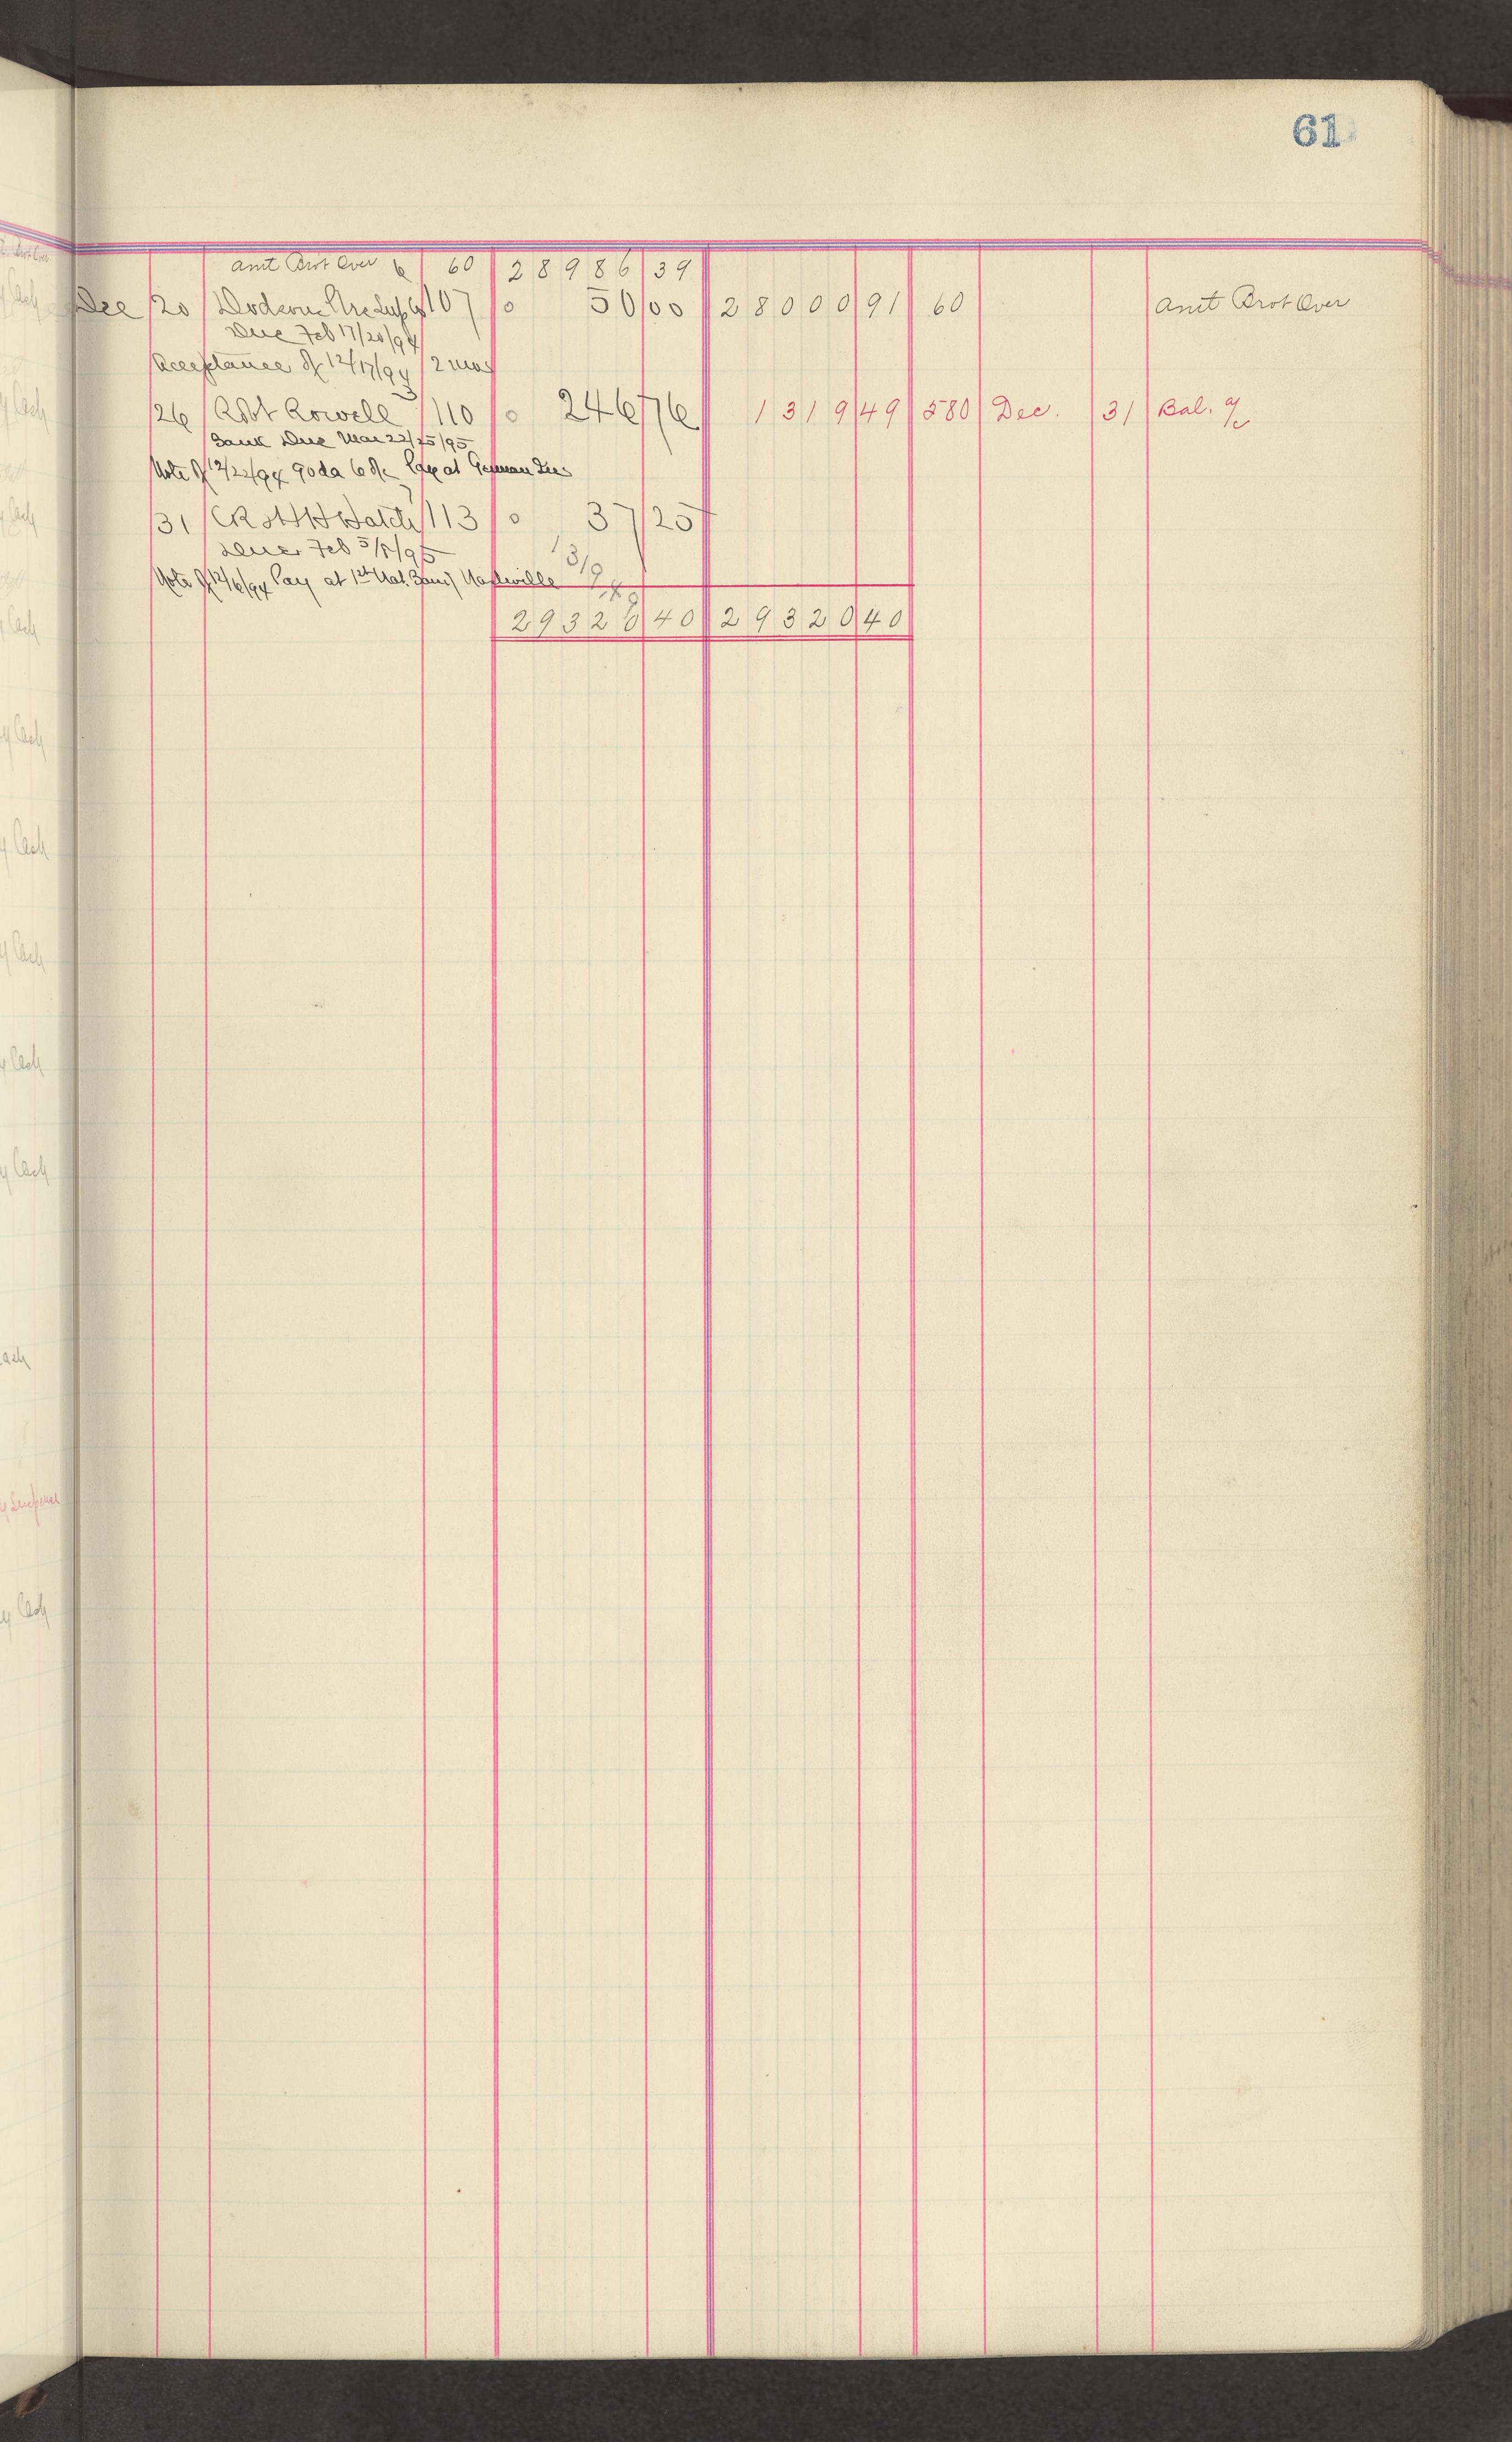 61
Amt Brot Over 60 28986 39
Dec 20 Dodson Ptg Sup Co 107 0 50 00 28000 91 60 Amt Brot Over
Due Feb 17/20/94
Acceptance of 12/17/94 2 mos
26 Robt Rowell 110 0 246 76 1319 49 580 Dec. 31 Bal. a/c
Bank Due Mar 22/25/95
Note of 12/22/94 90 da 6% Pay at German
31 C R & H H Hatch 113 0 37 25
Due Feb 5/8/95
1319 49
Note of 12/6/94 Pay at 1st Nat. Bank Nashville
29320 40 29320 40